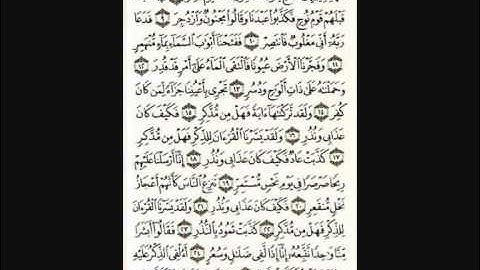 قَبْلَهُمْ قَوْمُ نُوحٍ فَكَذَّبُوا۟ عَبْدَنَا وَقَالُوا۟ مَجْنُونٌ وَٱزْدُجِرَ ٩ فَدَعَا
رَبَّهُۥٓ أَنِّى مَغْلُوبٌ فَٱنتَصِرْ ١٠ فَفَتَحْنَآ أَبْوَٰبَ ٱلسَّمَآءِ بِمَآءٍ مُّنْهَمِرٍ
١١ وَفَجَّرْنَا ٱلْأَرْضَ عُيُونًا فَٱلْتَقَى ٱلْمَآءُ عَلَىٰٓ أَمْرٍ قَدْ قُدِرَ ١٢
وَحَمَلْنَٰهُ عَلَىٰ ذَاتِ أَلْوَٰحٍ وَدُسُرٍ ١٣ تَجْرِى بِأَعْيُنِنَا جَزَآءً لِّمَن كَانَ
كُفِرَ ١٤ وَلَقَد تَّرَكْنَٰهَآ ءَايَةً فَهَلْ مِن مُّدَّكِرٍ ١٥ فَكَيْفَ كَانَ
عَذَابِى وَنُذُرِ ١٦ وَلَقَدْ يَسَّرْنَا ٱلْقُرْءَانَ لِلذِّكْرِ فَهَلْ مِن مُّدَّكِرٍ
١٧ كَذَّبَتْ عَادٌ فَكَيْفَ كَانَ عَذَابِى وَنُذُرِ ١٨ إِنَّآ أَرْسَلْنَا عَلَيْهِمْ
رِيحًا صَرْصَرًا فِى يَوْمِ نَحْسٍ مُّسْتَمِرٍّ ١٩ تَنزِعُ ٱلنَّاسَ كَأَنَّهُمْ أَعْجَازُ
نَخْلٍ مُّنقَعِرٍ ٢٠ فَكَيْفَ كَانَ عَذَابِى وَنُذُرِ ٢١ وَلَقَدْ يَسَّرْنَا ٱلْقُرْءَانَ
لِلذِّكْرِ فَهَلْ مِن مُّدَّكِرٍ ٢٢ كَذَّبَتْ ثَمُودُ بِٱلنُّذُرِ ٢٣ فَقَالُوٓا۟ أَبَشَرًا
مِّنَّا وَٰحِدًا نَّتَّبِعُهُۥٓ إِنَّآ إِذًا لَّفِى ضَلَٰلٍ وَسُعُرٍ ٢٤ أَءُلْقِىَ ٱلذِّكْرُ عَلَيْهِ